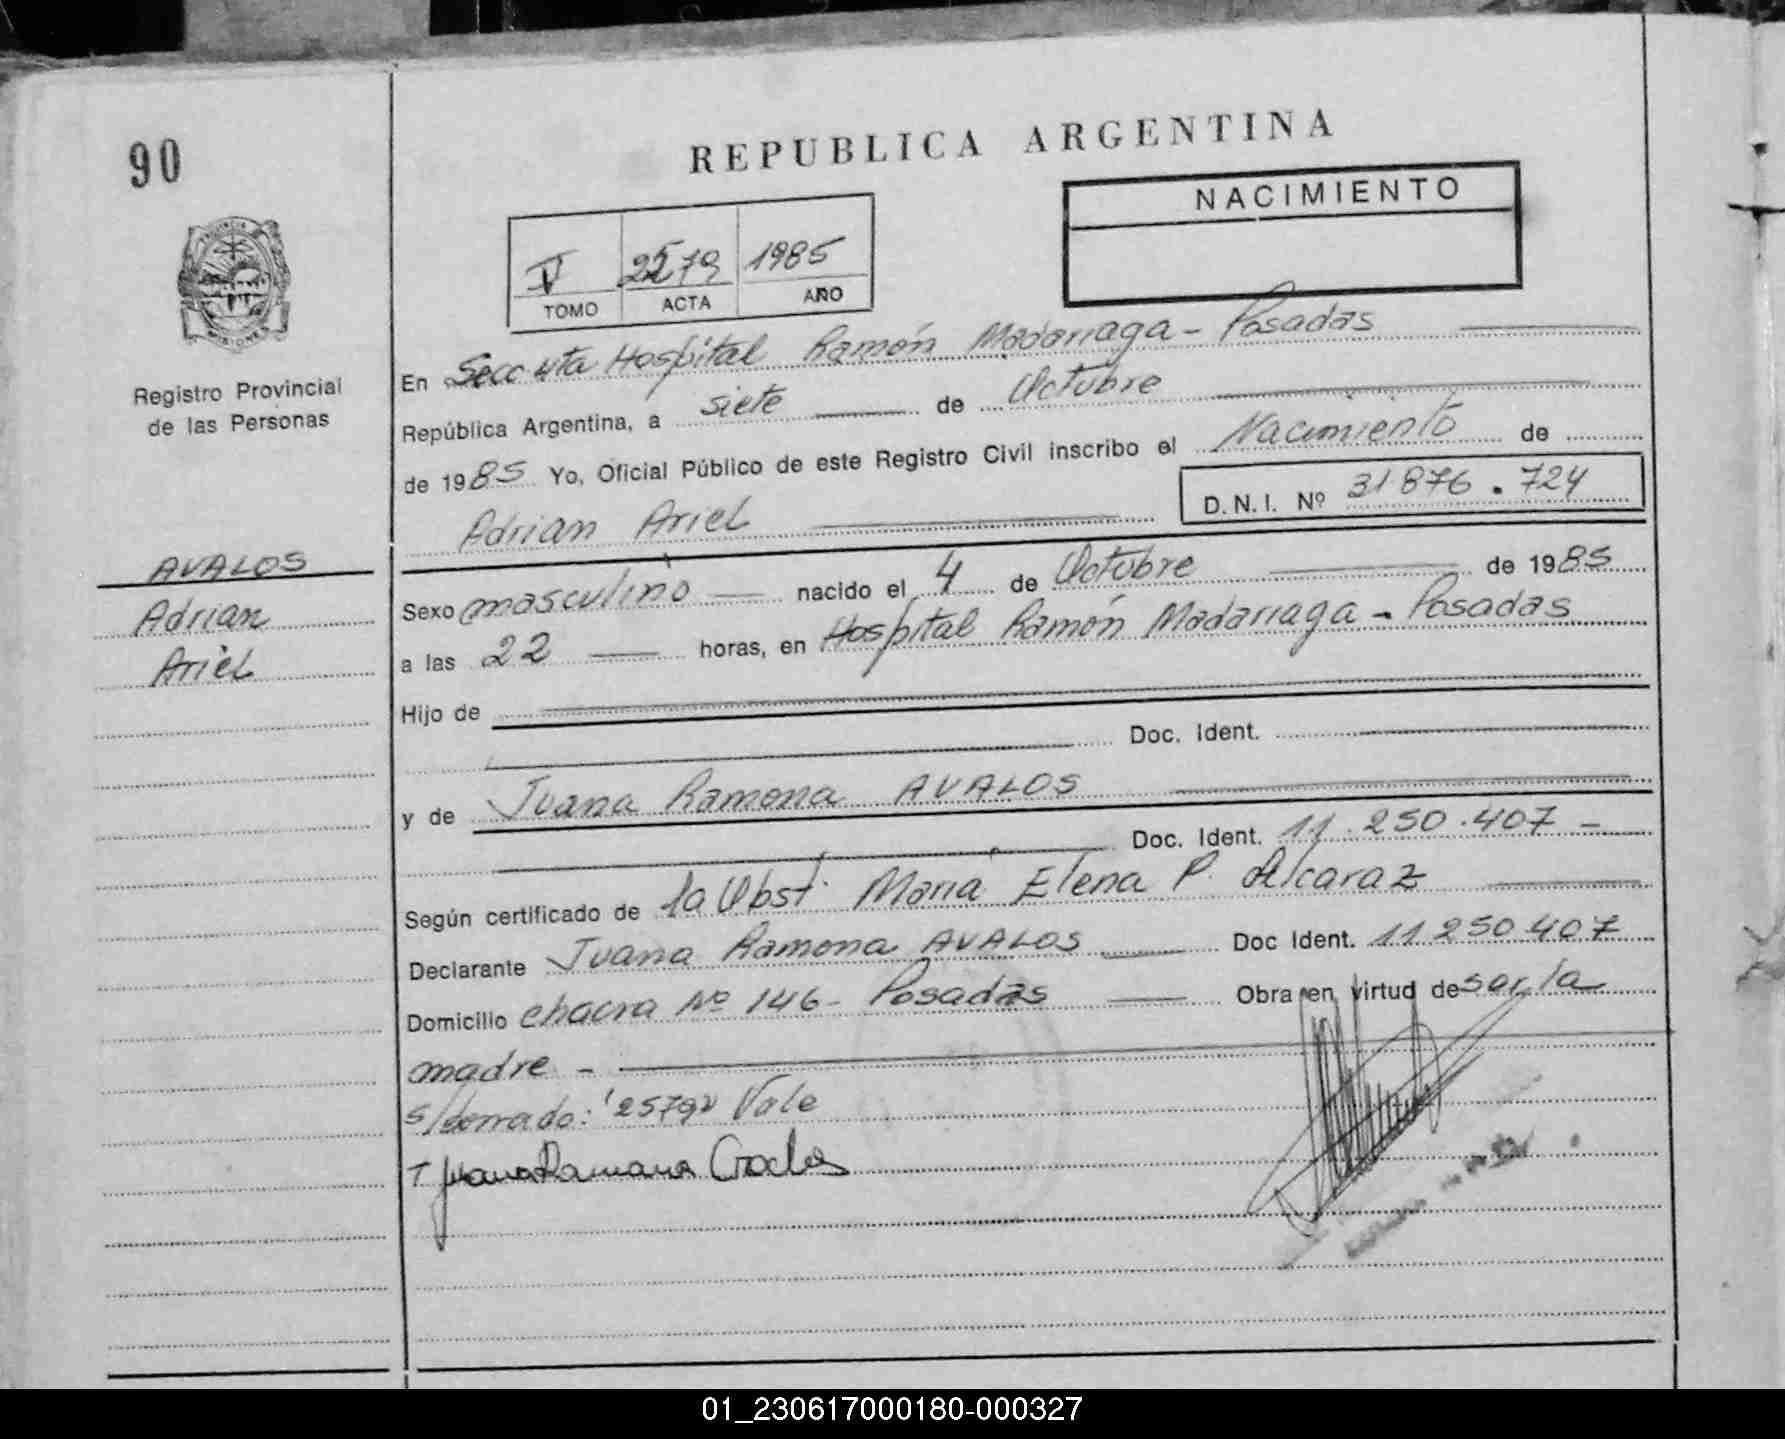 90
REPUBLICA ARGENTINA
NACIMIENTO
V 2579 1985
TOMO ACTA AÑO
PROVINCIA DE MISIONES
Registro Provincial
de las Personas
En Secc 4ta Hospital Ramón Madariaga - Posadas
República Argentina, a siete de Octubre
de 1985 Yo, Oficial Público de este Registro Civil inscribo el Nacimiento de
D.N.I. Nº 31876.724
Adrian Ariel
AVALOS
Adrian
Ariel
Sexo masculino nacido el 4 de Octubre de 1985
a las 22 horas, en Hospital Ramón Madariaga - Posadas
Hijo de
Doc. Ident.
y de Juana Ramona AVALOS
Doc. Ident. 11.250.407 -
Según certificado de la Obst. María Elena P. Alcaraz
Declarante Juana Ramona AVALOS Doc Ident. 11250407
Domicilio chacra Nº 146 - Posadas Obra en virtud de ser la
madre -
s/borrado: "2579" Vale
Juana Ramana
01_230617000180-000327